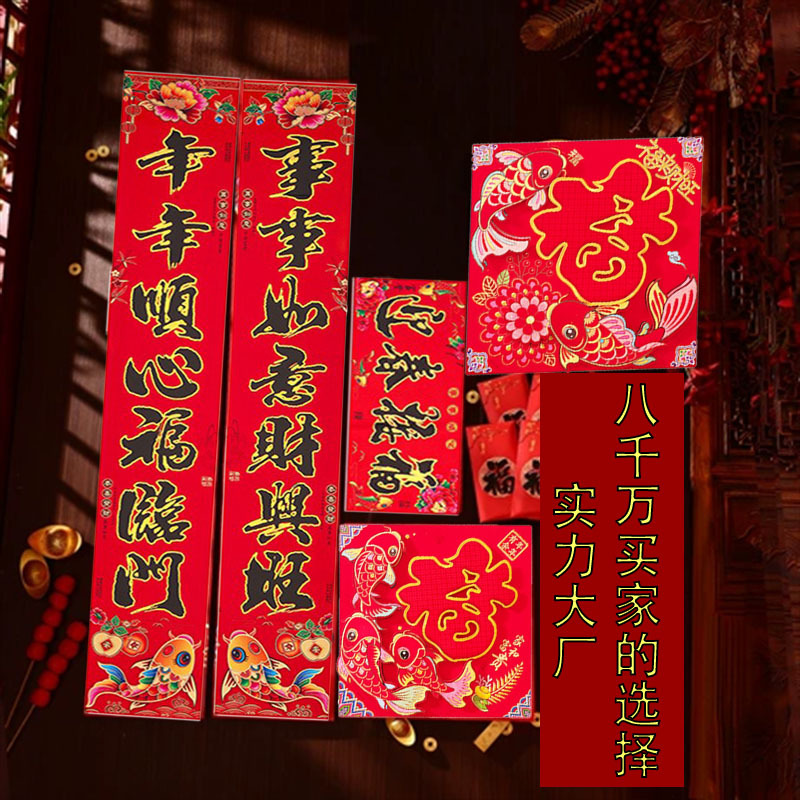 事事如意財興旺
年年順心福臨門
迎春接福
福
福
福
八千万买家的选择
实力大厂